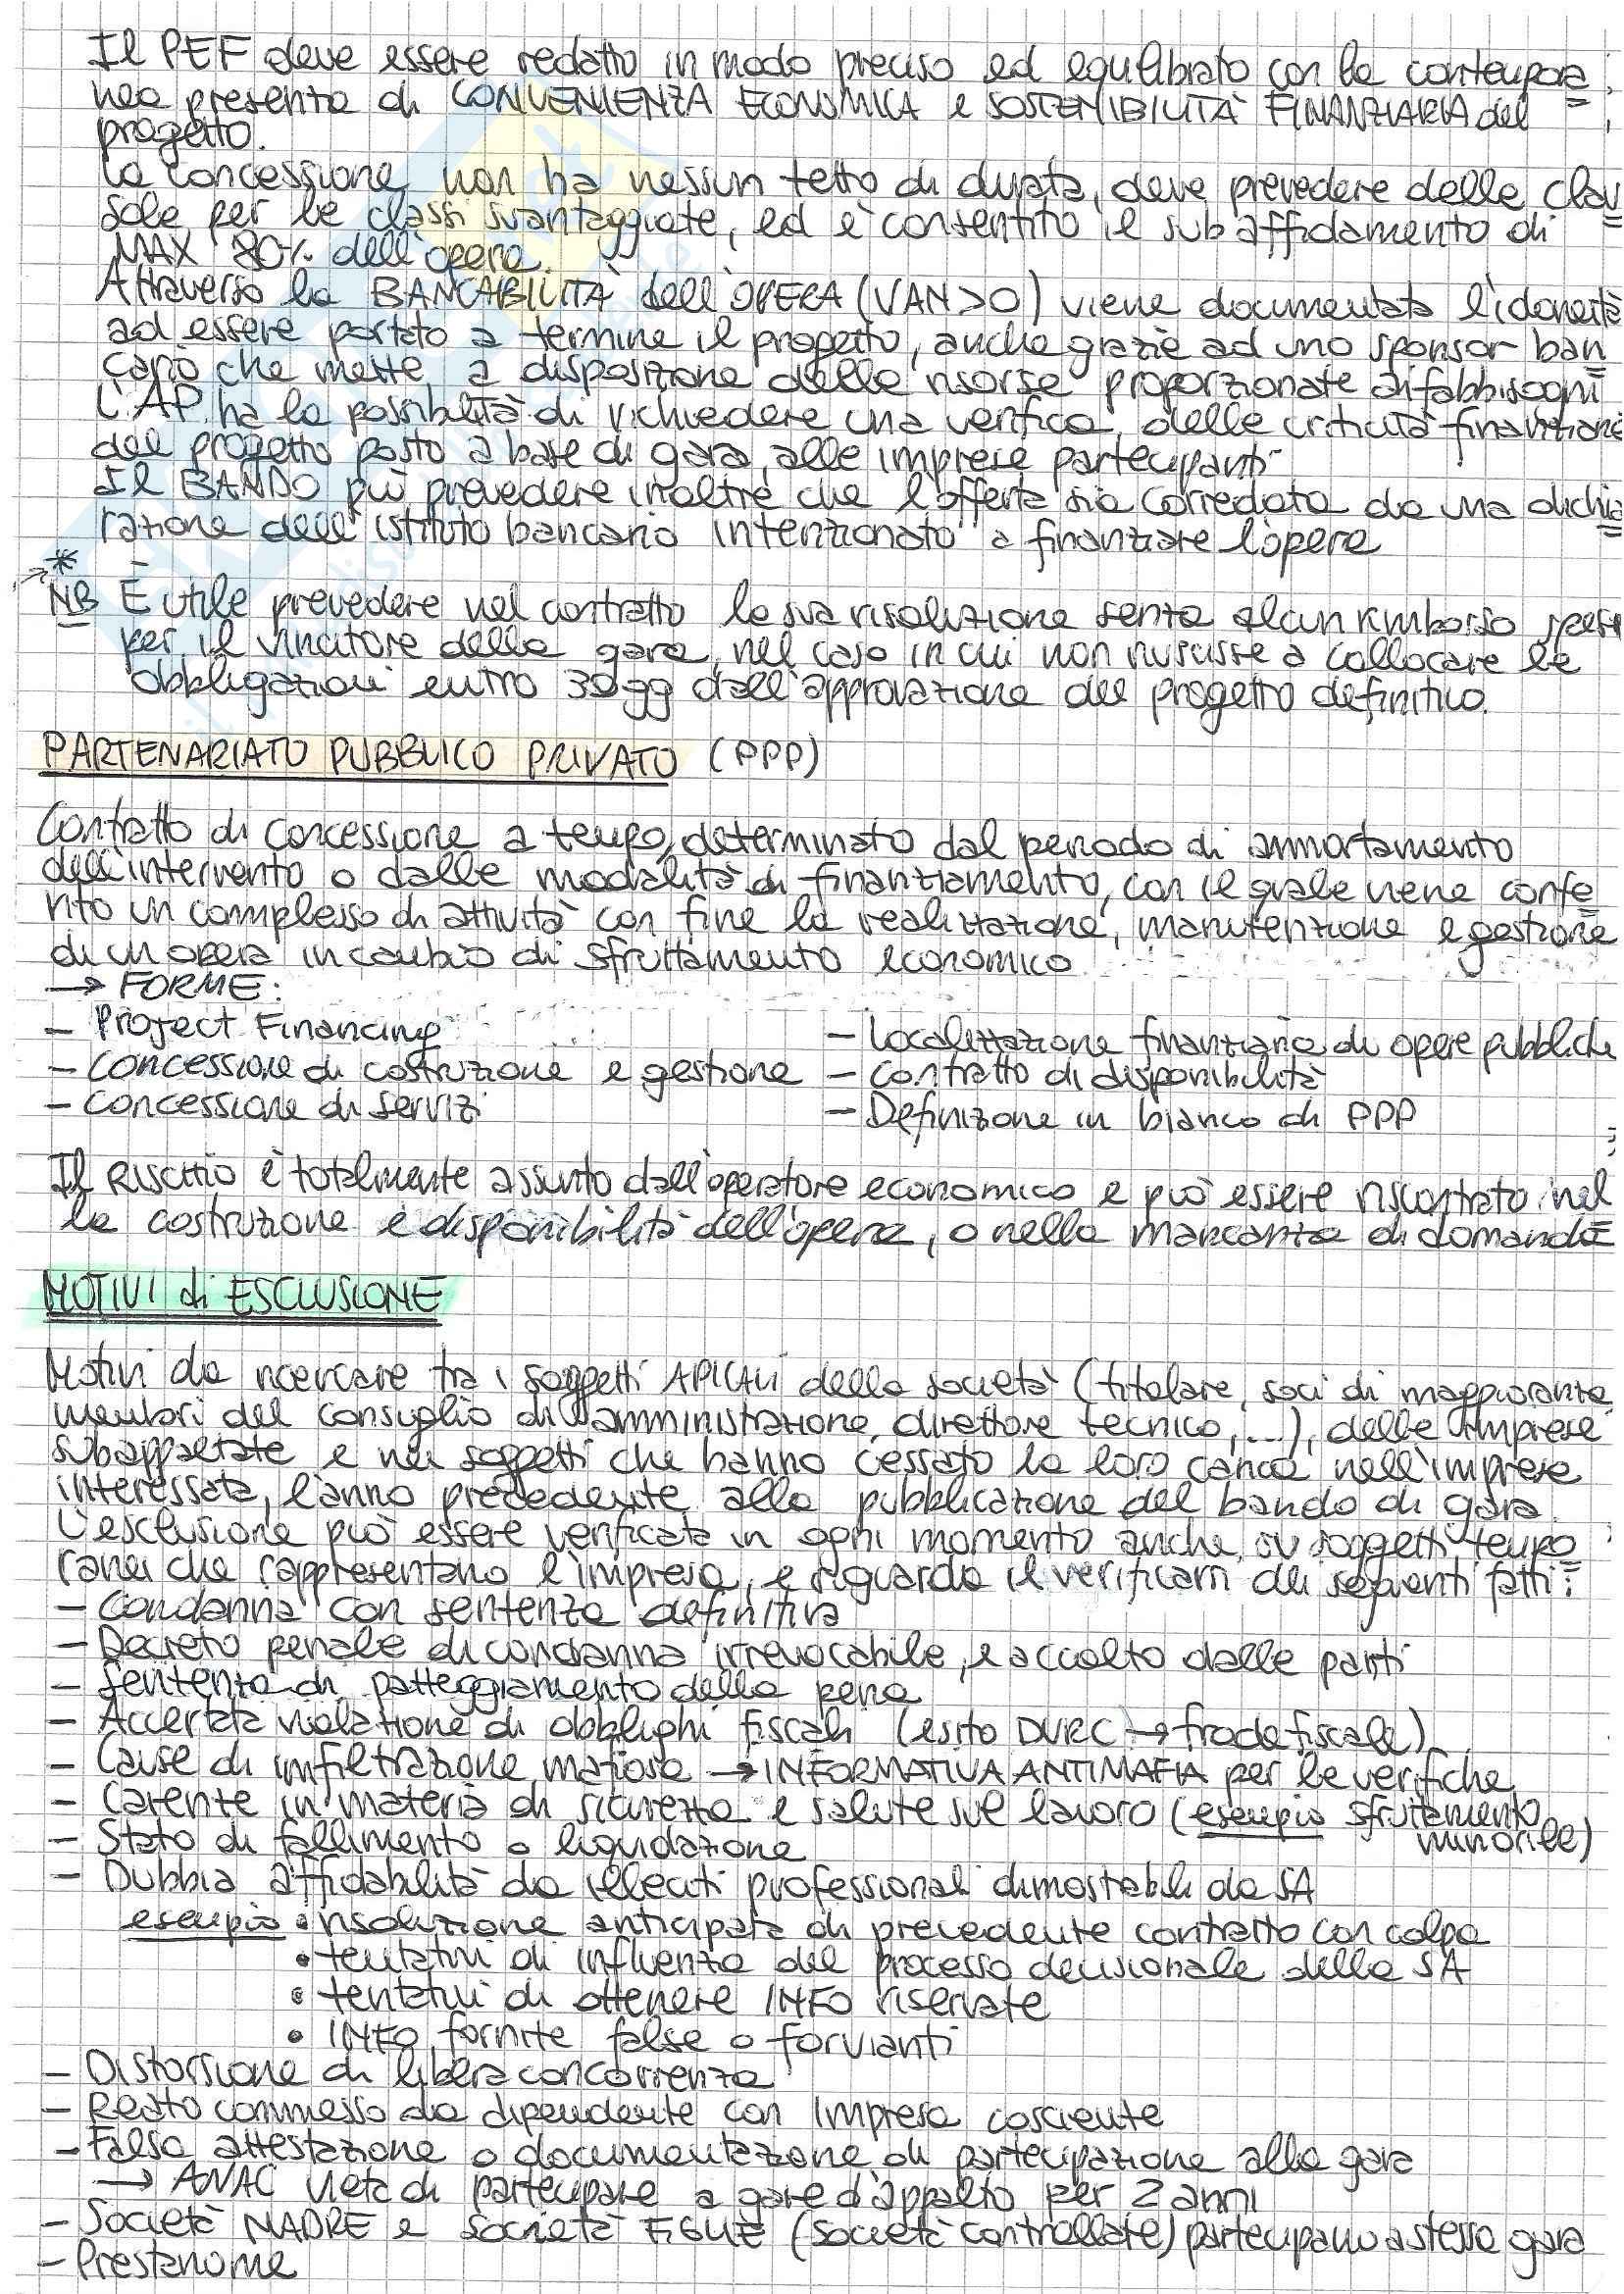 Il PEF deve essere redatto in modo preciso ed equilibrato con la contempora
nea presenza di CONVENIENZA ECONOMICA e SOSTENIBILITÀ FINANZIARIA del
progetto.
La concessione non ha nessun tetto di durata, deve prevedere delle clau
sole per le classi svantaggiate, ed è consentito il subaffidamento di
MAX 80% dell'opera.
Attraverso la BANCABILITÀ dell'OPERA (VAN>0) viene documentata l'idoneità
ad essere portato a termine il progetto, anche grazie ad uno sponsor ban
cario che mette a disposizione delle risorse proporzionate ai fabbisogni
L'AP. ha la possibilità di richiedere una verifica delle criticità finanziarie
del progetto posto a base di gara, alle imprese partecipanti
Il BANDO può prevedere inoltre che l'offerta sia corredata da una dichia
razione dell'istituto bancario intenzionato a finanziare l'opera
*
NB È utile prevedere nel contratto la sua risoluzione senza alcun rimborso spese
per il vincitore della gara, nel caso in cui non riuscisse a collocare le
obbligazioni entro 30gg dall'approvazione del progetto definitivo.
PARTENARIATO PUBBLICO PRIVATO (PPP)
Contratto di concessione a tempo determinato dal periodo di ammortamento
dell'intervento o dalle modalità di finanziamento, con il quale viene confe
rito un complesso di attività con fine la realizzazione, manutenzione e gestione
di un opera in cambio di sfruttamento economico
→ FORME:
- Project Financing
- Concessione di costruzione e gestione
- Concessione di servizi
- Localizzazione finanziaria di opere pubbliche
- Contratto di disponibilità
- Definizione in bianco di PPP
Il RISCHIO è totalmente assunto dall'operatore economico e può essere riscontrato nel
la costruzione e disponibilità dell'opera, o nella mancanza di domanda
MOTIVI di ESCLUSIONE
Motivi da ricercare tra i soggetti APICALI della società (titolare, soci di maggioranza,
membri del consiglio di amministrazione, direttore tecnico, ...), delle imprese
subappaltate e nei soggetti che hanno cessato la loro carica nell'impresa
interessata, l'anno precedente alla pubblicazione del bando di gara.
L'esclusione può essere verificata in ogni momento anche su soggetti tempo
ranei che rappresentano l'impresa, e riguarda il verificarsi dei seguenti fatti:
- Condanna con sentenza definitiva
- Decreto penale di condanna irrevocabile, e accolto dalle parti
- Sentenza di patteggiamento della pena
- Accertata violazione di obblighi fiscali (esito DURC → frode fiscale)
- Cause di imfiltrazione mafiosa → INFORMATIVA ANTIMAFIA per le verifiche
- Carente in materia di sicurezza e salute sul lavoro (esempio sfruttamento
minorile)
- Stato di fallimento o liquidazione
- Dubbia affidabilità da illeciti professionali dimostrabili da SA
esempio • risoluzione anticipata di precedente contratto con colpa
• tentativi di influenza del processo decisionale della SA
• tentativi di ottenere INFO riservate
• INFO fornite false o forvianti
- Distorsione di libera concorrenza
- Reato commesso da dipendente con impresa cosciente
- Falsa attestazione o documentazione di partecipazione alla gara
→ ANAC vieta di partecipare a gare d'appalto per 2 anni
- Società MADRE e società FIGLIE (società controllate) partecipano a stessa gara
- Prestanome